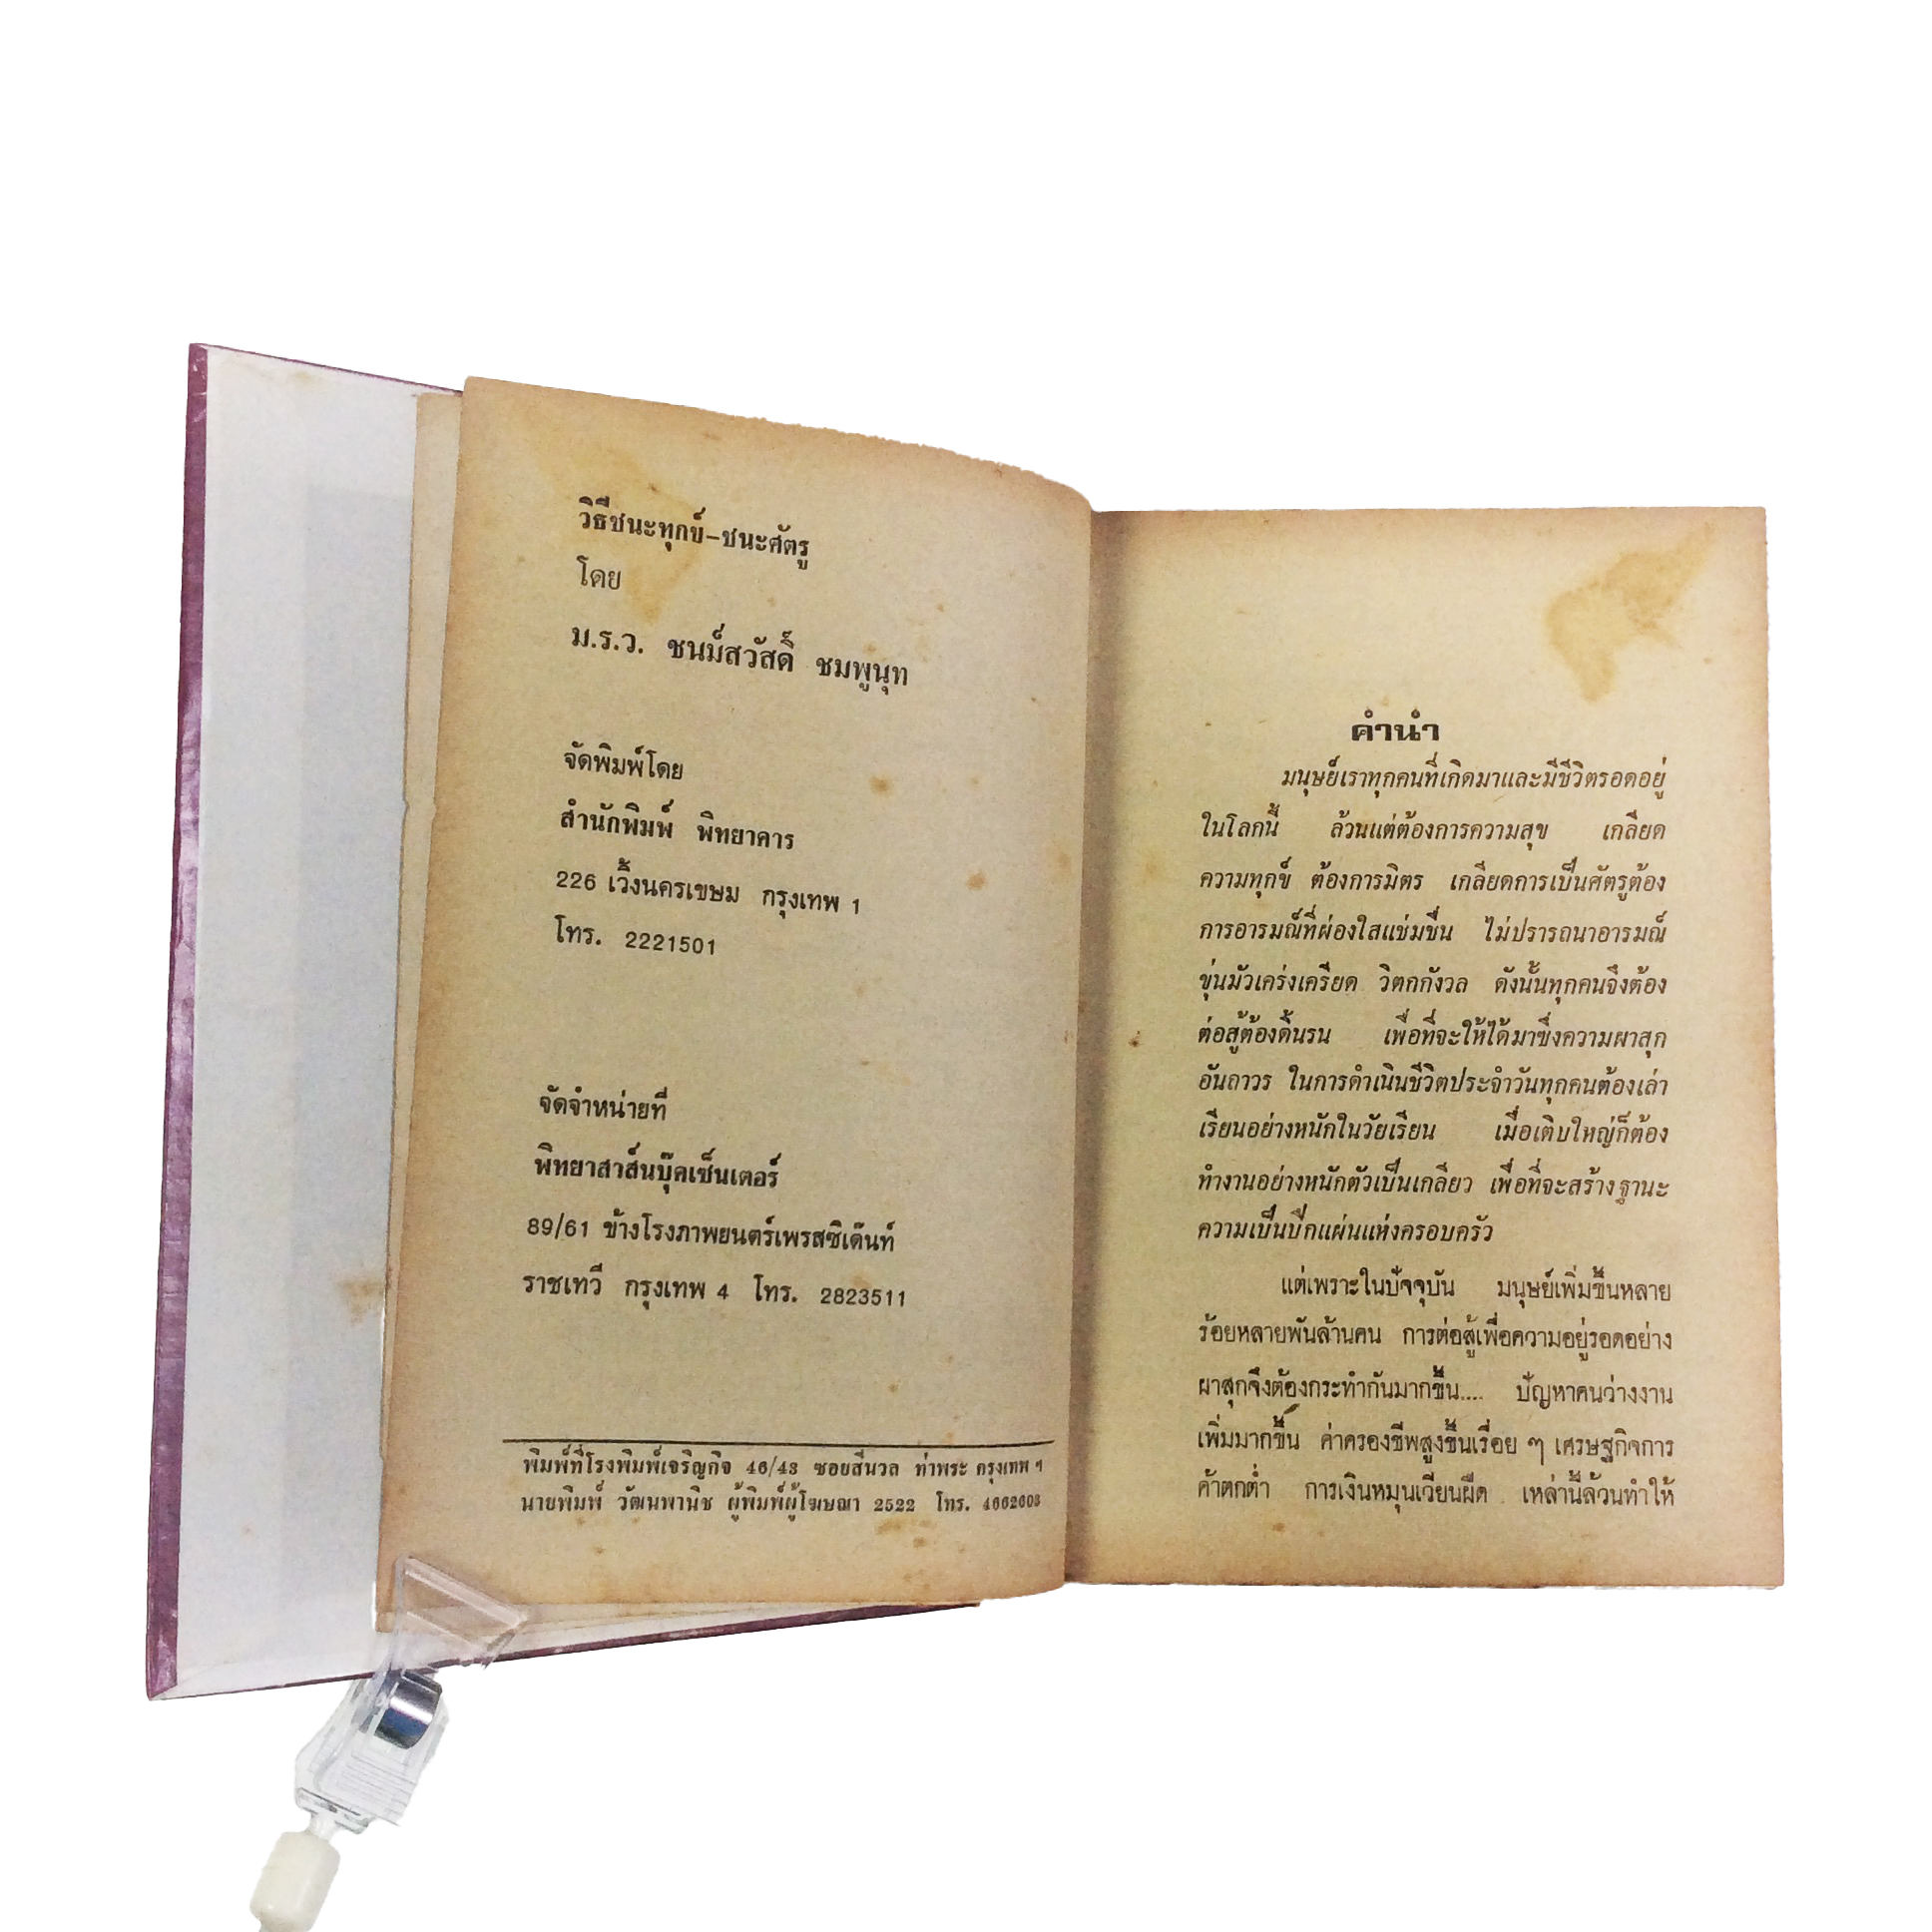 วิธีชนะทุกข์-ชนะศัตรู
โดย
ม.ร.ว. ชนม์สวัสดิ์ ชมพูนุท
จัดพิมพ์โดย
สำนักพิมพ์ พิทยาคาร
226 เวิ้งนครเขษม กรุงเทพ 1
โทร. 2221501
จัดจำหน่ายที่
พิทยาสาส์นบุ๊คเซ็นเตอร์
89/61 ข้างโรงภาพยนตร์เพรสซิเด๊นท์
ราชเทวี กรุงเทพ 4 โทร. 2823511
พิมพ์ที่โรงพิมพ์เจริญกิจ 46/43 ซอยสีนวล ท่าพระ กรุงเทพ ฯ
นายพิมพ์ วัฒนพานิช ผู้พิมพ์ผู้โฆษณา 2522 โทร. 4662603
คำนำ
มนุษย์เราทุกคนที่เกิดมาและมีชีวิตรอดอยู่
ในโลกนี้ ล้วนแต่ต้องการความสุข เกลียด
ความทุกข์ ต้องการมิตร เกลียดการเป็นศัตรูต้อง
การอารมณ์ที่ผ่องใสแช่มชื่น ไม่ปรารถนาอารมณ์
ขุ่นมัวเคร่งเครียด วิตกกังวล ดังนั้นทุกคนจึงต้อง
ต่อสู้ต้องดิ้นรน เพื่อที่จะให้ได้มาซึ่งความผาสุก
อันถาวร ในการดำเนินชีวิตประจำวันทุกคนต้องเล่า
เรียนอย่างหนักในวัยเรียน เมื่อเติบใหญ่ก็ต้อง
ทำงานอย่างหนักตัวเป็นเกลียว เพื่อที่จะสร้างฐานะ
ความเป็นปึกแผ่นแห่งครอบครัว
แต่เพราะในปัจจุบัน มนุษย์เพิ่มขึ้นหลาย
ร้อยหลายพันล้านคน การต่อสู้เพื่อความอยู่รอดอย่าง
ผาสุกจึงต้องกระทำกันมากขึ้น.... ปัญหาคนว่างงาน
เพิ่มมากขึ้น ค่าครองชีพสูงขึ้นเรื่อย ๆ เศรษฐกิจการ
ค้าตกต่ำ การเงินหมุนเวียนฝืด เหล่านี้ล้วนทำให้